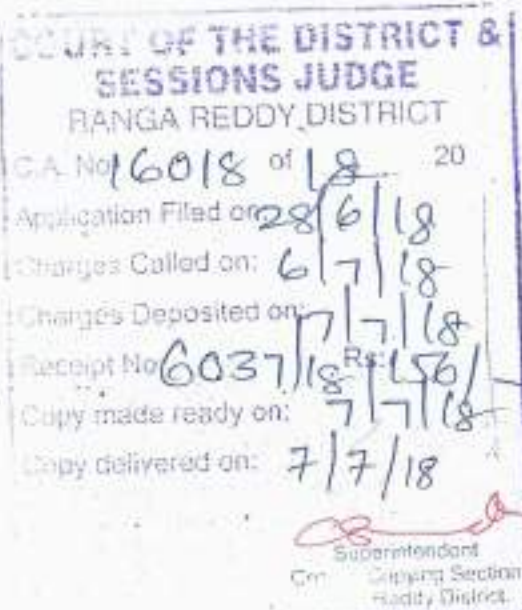 COURT OF THE DISTRICT &
SESSIONS JUDGE
RANGA REDDY DISTRICT
C.A. No 16018 of 18 20
Application Filed on 28/6/18
Charges Called on: 6/7/18
Charges Deposited on: 7/7/18
Receipt No 6037/18 Rs: 156/
Copy made ready on: 7/7/18
Copy delivered on: 7/7/18
Superintendent
Copying Section
Reddy District.